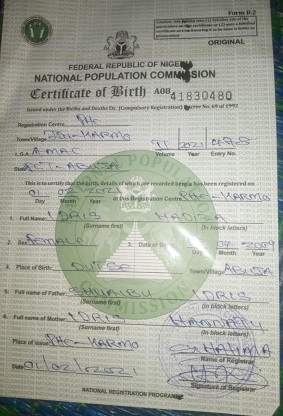 Form B.2
ORIGINAL
FEDERAL REPUBLIC OF NIGERIA
NATIONAL POPULATION COMMISSION
Certificate of Birth A08 41830480
Issued under the Births and Deaths Etc. (Compulsory Registration) Decree No. 69 of 1992
Registration Centre PHC
Town/Village KARMO
L.G.A AMAC 2021
Volume Year Entry No.
State FCT-ABUJA
This is to certify that the birth, details of which are recorded herein has been registered on
01 02 2021 at this Registration Centre PHC-KARMO
Day Month Year
1. Full Name: IDRIS HADIZA
(Surname first) (In block letters)
2. Sex FEMALE 3. Date of Birth 04 2009
Day Month Year
4. Place of Birth: DUTSE Town/Village ABUJA
5. Full name of Father: SHUAIBU IDRIS
(Surname first) (In block letters)
6. Full name of Mother: IDRIS
(Surname first) (In block letters)
Place of Issue PHC-KARMO
Name of Registrar
Date 01/02/2021
Signature of Registrar
NATIONAL REGISTRATION PROGRAMME